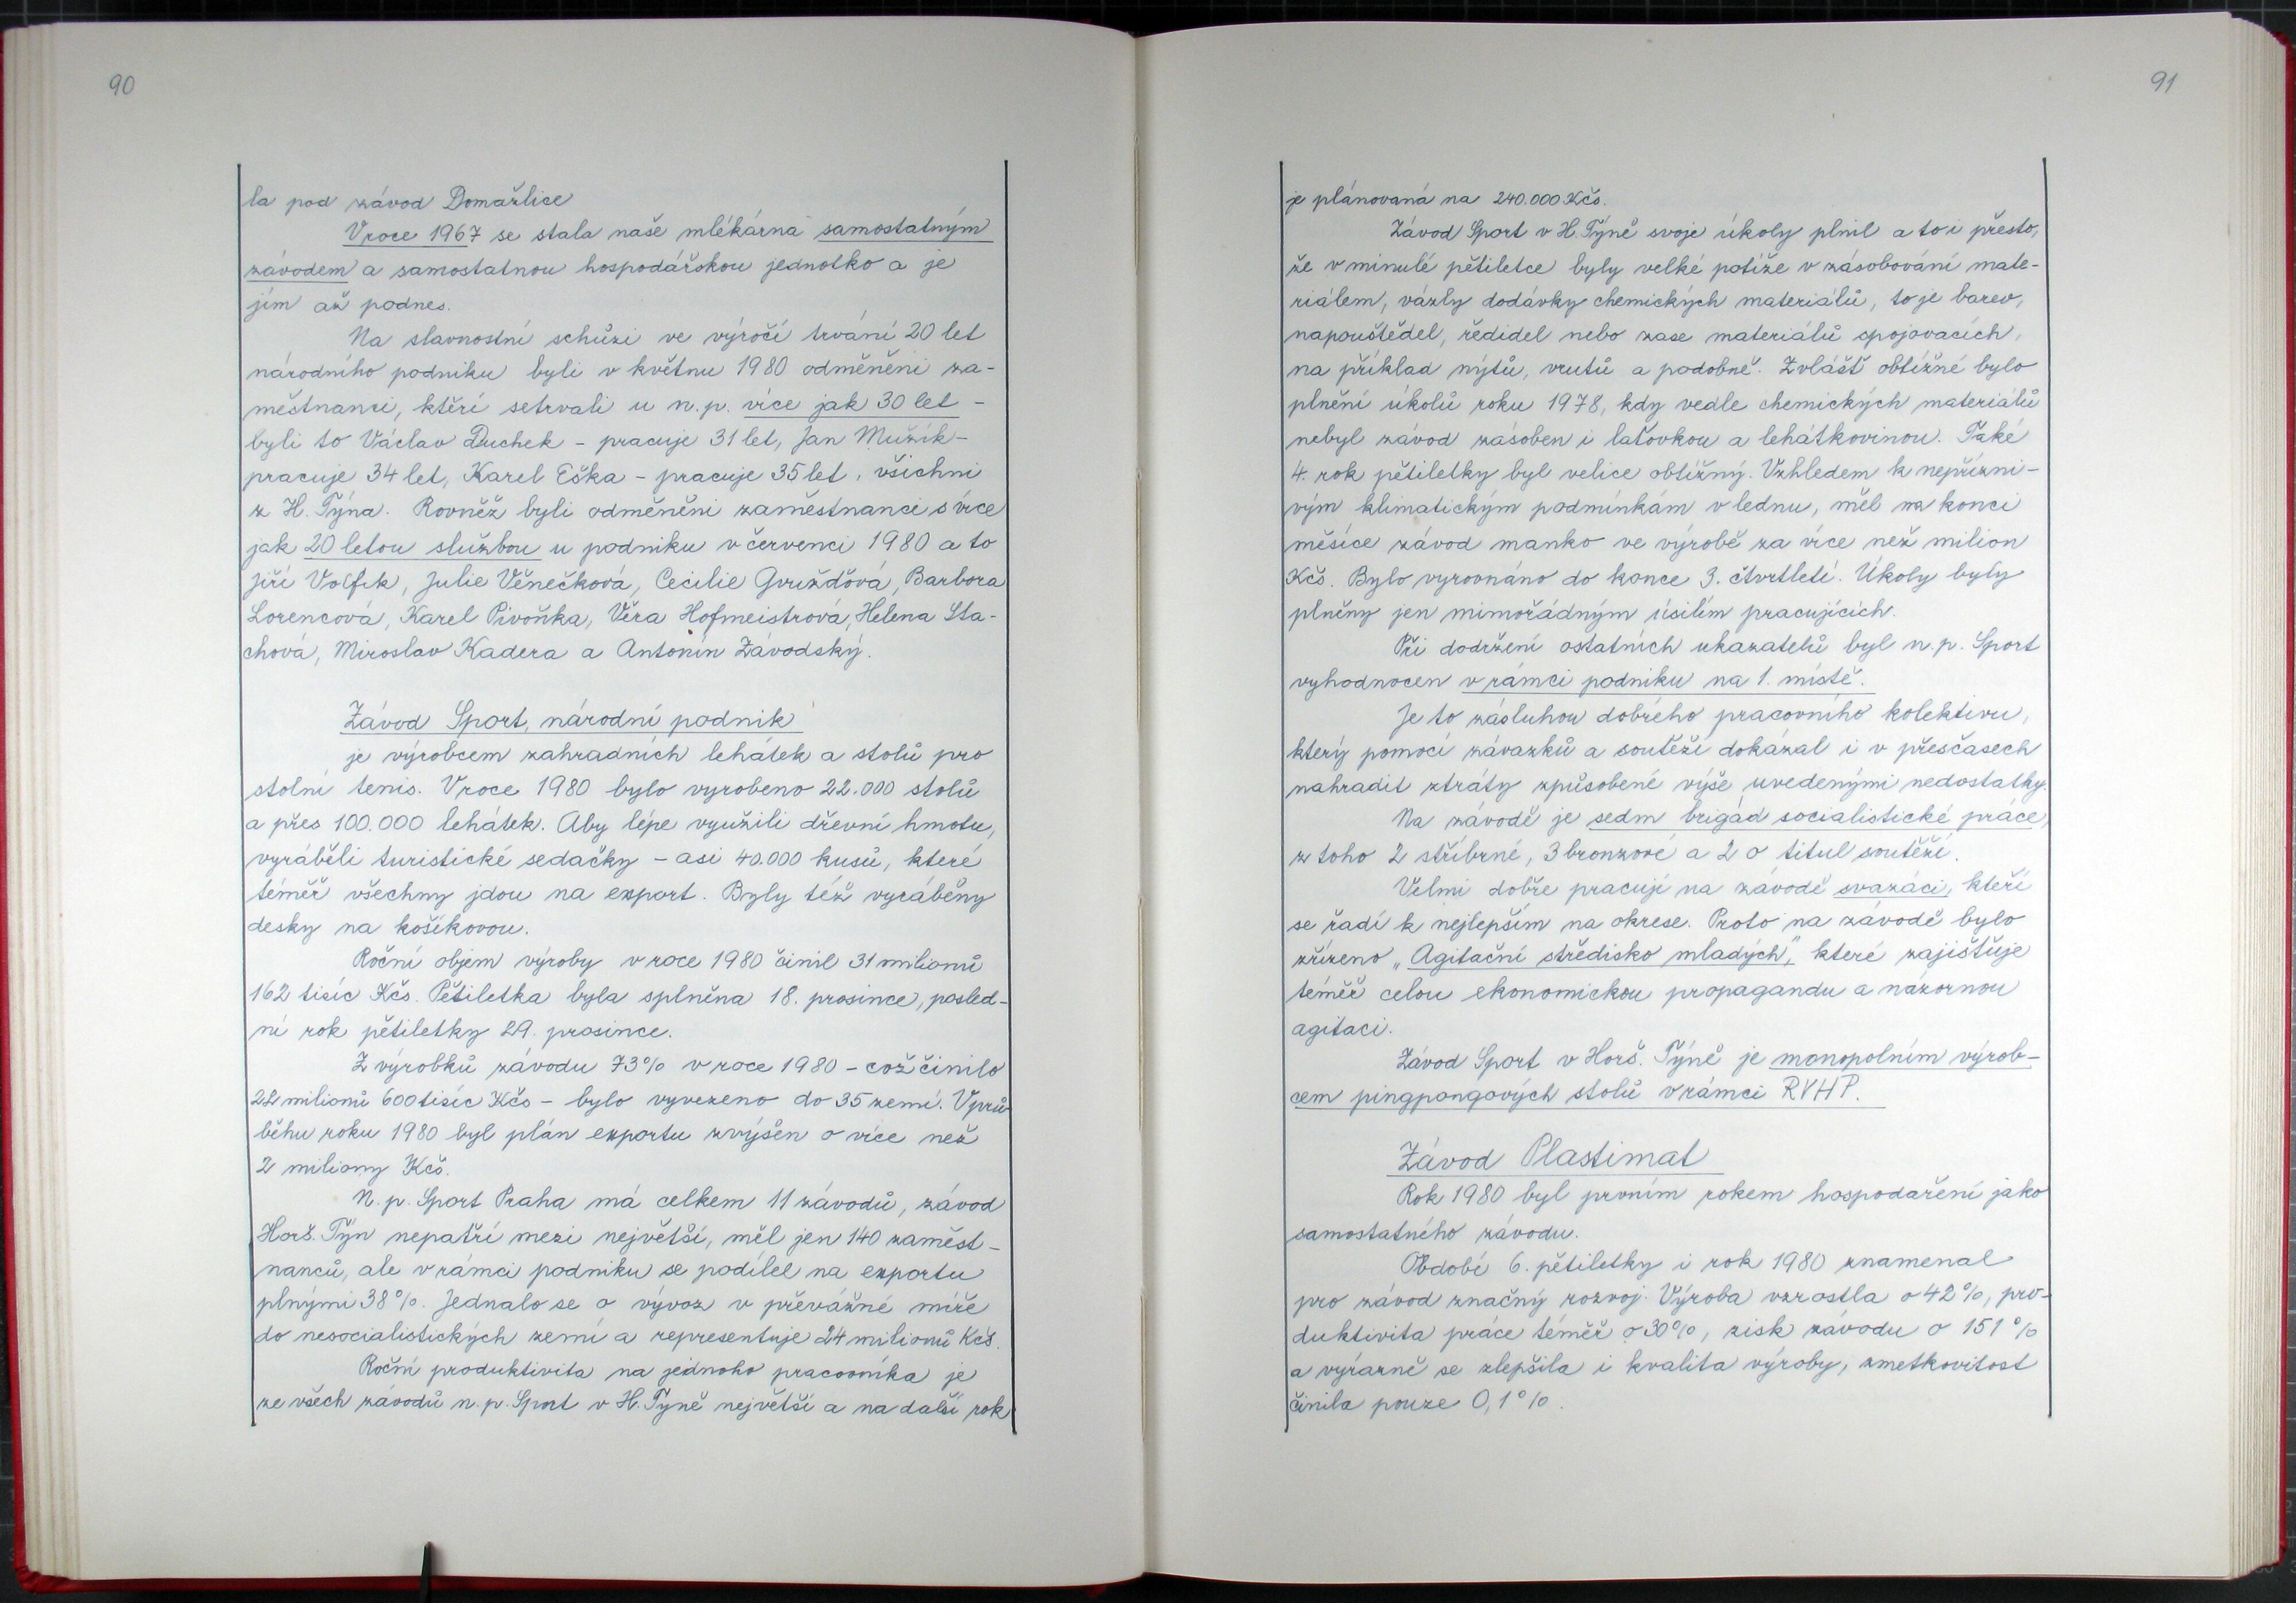 90
la pod závod Domažlice
V roce 1967 se stala naše mlékárna samostatným
závodem a samostatnou hospodářskou jednotko a je
jím až podnes.
Na slavnostní schůzi ve výročí trvání 20 let
národního podniku byli v květnu 1980 odměněni za-
městnanci, kteří setrvali u n.p. více jak 30 let -
byli to Václav Duchek - pracuje 31 let, Jan Mužík -
pracuje 34 let, Karel Eška - pracuje 35 let, všichni
z H. Týna. Rovněž byli odměněni zaměstnanci s více
jak 20 letou službou u podniku v červenci 1980 a to
Jiří Volfík, Julie Věnečková, Cecilie Gruždřová, Barbora
Lorencová, Karel Pivoňka, Věra Hofmeistrová, Helena Sta-
chová, Miroslav Kadera a Antonín Závodský.
Závod Sport, národní podnik
je výrobcem zahradních lehátek a stolů pro
stolní tenis. V roce 1980 bylo vyrobeno 22.000 stolů
a přes 100.000 lehátek. Aby lépe využili dřevní hmotu,
vyráběli turistické sedačky - asi 40.000 kusů, které
téměř všechny jdou na export. Byly též vyráběny
desky na košíkovou.
Roční objem výroby v roce 1980 činil 31 milionů
162 tisíc Kčs. Pětiletka byla splněna 18. prosince, posled-
ní rok pětiletky 29. prosince.
Z výrobků závodu 73% v roce 1980 - což činilo
22 milionů 600 tisíc Kčs - bylo vyvezeno do 35 zemí. V prů
běhu roku 1980 byl plán exportu zvýšen o více než
2 miliony Kčs.
N. p. Sport Praha má celkem 11 závodů, závod
Horš. Týn nepatří mezi největší, měl jen 140 zaměst-
nanců, ale v rámci podniku se podílel na exportu
plnými 38%. Jednalo se o vývoz v převážné míře
do nesocialistických zemí a representuje 24 milionů Kčs.
Roční produktivita na jednoho pracovníka je
ze všech závodů n. p. Sport v H. Týně největší a na další rok
91
je plánovaná na 240.000 Kčs.
Závod Sport v H. Týně svoje úkoly plnil a to i přesto,
že v minulé pětiletce byly velké potíže v zásobování mate-
riálem, vázly dodávky chemických materiálů, to je barev,
napouštědel, ředidel nebo zase materiálů spojovacích,
na příklad nýtů, vrutů a podobně. Zvlášť obtížné bylo
plnění úkolů roku 1978, kdy vedle chemických materiálů
nebyl závod zásoben i laťovkou a lehátkovinou. Také
4. rok pětiletky byl velice obtížný. Vzhledem k nepřízni-
vým klimatickým podmínkám v lednu, měl na konci
měsíce závod manko ve výrobě za více než milion
Kčs. Bylo vyrovnáno do konce 3. čtvrtletí. Úkoly byly
plněny jen mimořádným úsilím pracujících.
Při dodržení ostatních ukazatelů byl n. p. Sport
vyhodnocen v rámci podniku na 1. místě.
Je to zásluhou dobrého pracovního kolektivu,
který pomocí závazků a soutěží dokázal i v přesčasech
nahradit ztráty způsobené výše uvedenými nedostatky.
Na závodě je sedm brigád socialistické práce,
z toho 2 stříbrné, 3 bronzové a 2 o titul soutěží.
Velmi dobře pracují na závodě svazáci, kteří
se řadí k nejlepším na okrese. Proto na závodě bylo
zřízeno „Agitační středisko mladých", které zajišťuje
téměř celou ekonomickou propagandu a názornou
agitaci.
Závod Sport v Horš. Týně je monopolním výrob-
cem pingpongových stolů v rámci RVHP.
Závod Plastimat
Rok 1980 byl prvním rokem hospodaření jako
samostatného závodu.
Období 6. pětiletky i rok 1980 znamenal
pro závod značný rozvoj. Výroba vzrostla o 42%, pro-
duktivita práce téměř o 30%, zisk závodu o 151%
a výrazně se zlepšila i kvalita výroby, zmetkovitost
činila pouze 0,1%.